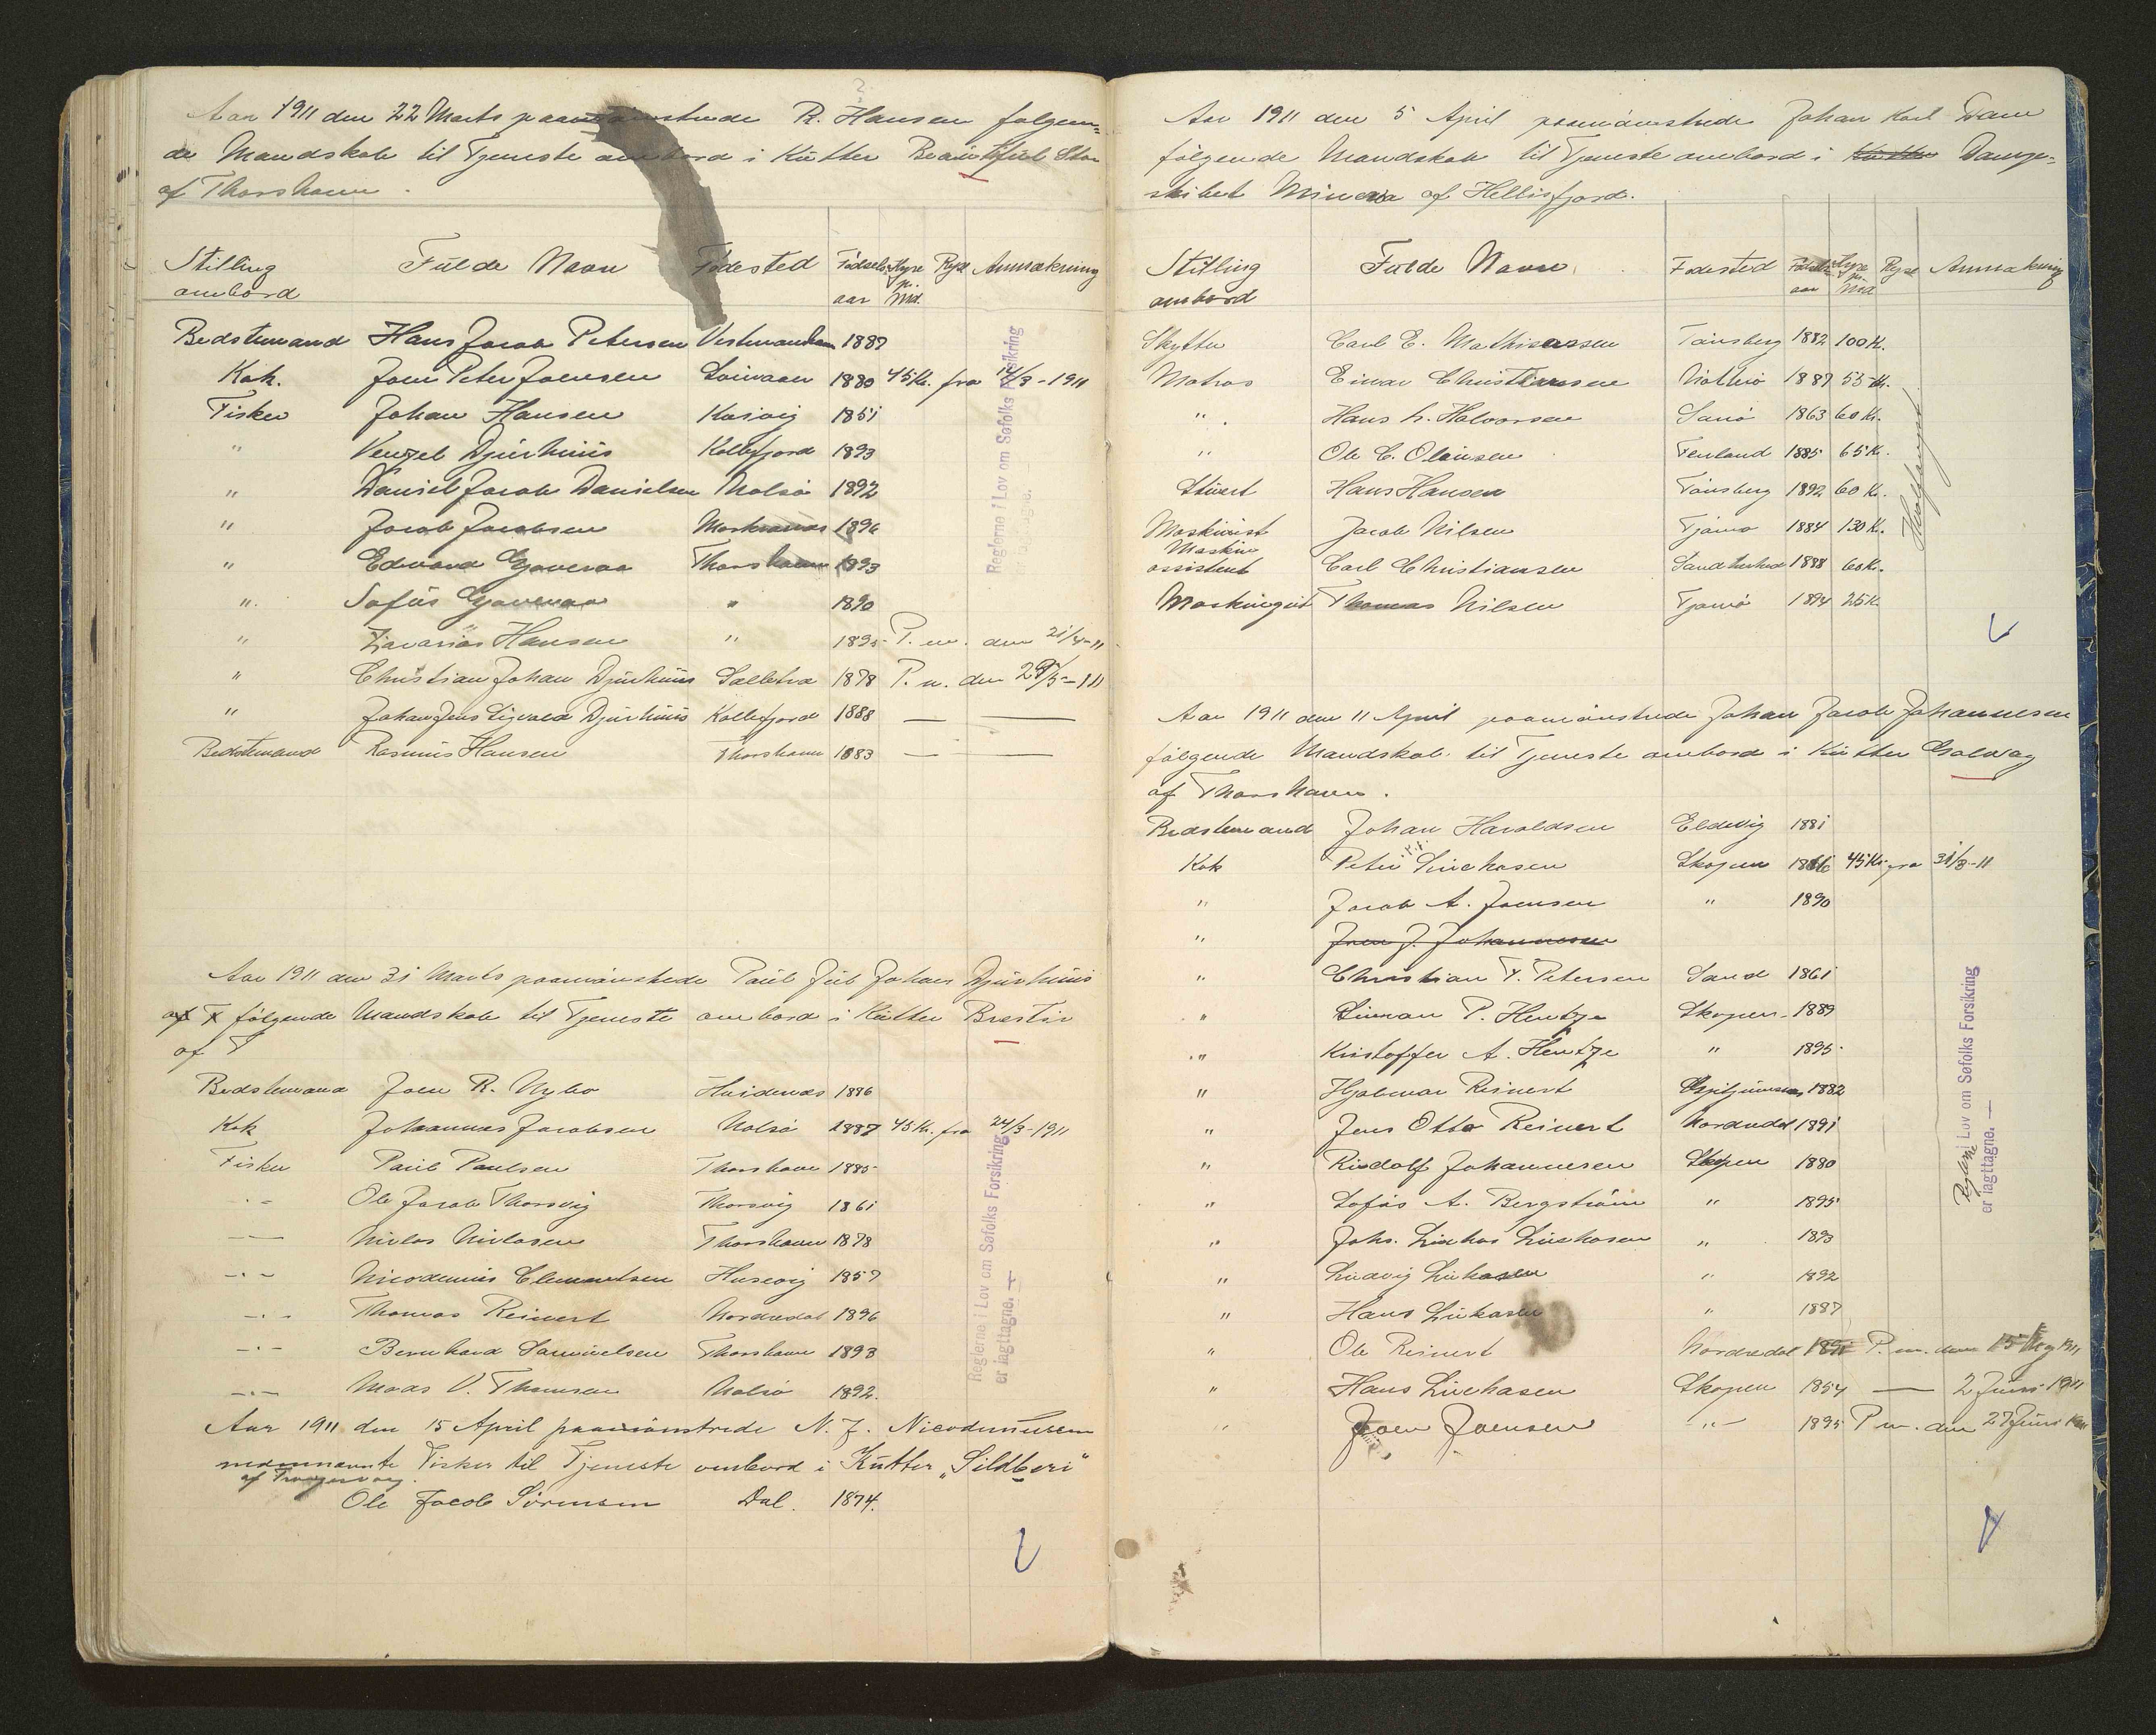 Aar 1911 den 22 Marts paamönstrede R. Hansen følgen=
de Mandskab til Tjeneste ombord i Kutter Beautiful Star
af Thorshavn.
Stilling ombord Fulde Navn Födested Födsels aar Hyre pr. Md. Rejse Anmærkning
Bedstemand Hans Jacob Petersen Vestmanhavn 1887
Kok. Joen Peter Joensen 1880 45 Kr. fra /3-1911
Fisker Johan Hansen 1851
" Venzel Djurhuus Kollefjord 1893
" Daniel Jacob Danielsen Nolsö 1892
" Jacob Jacobsen 1896
" Edvard Thorshavn 1893
" Sofus " 1890
" Zacarias Hansen " 1895 P. m. den 21/4-11
" Christian Johan Djurhuus 1878 P. m. den /5-11
" Johan Jens Sigvald Djurhuus Kollefjord 1888 — —
Bedstemand Rasmus Hansen Thorshavn 1883 — —
Reglerne i Lov om Søfolks Forsikring
er iagttagne.
Aar 1911 den 31 Marts paamönstrede Paul Juul Johan Djurhuus
af T følgende Mandskab til Tjeneste ombord i Kutter Brestir
af T
Bedstemand Joen R. Nybo 1886
Kok Johannes Jacobsen Nolsö 1887 45 Kr. fra 24/3-1911
Fisker Paul Paulsen Thorshavn 1885
-"- Ole Jacob Thorsvig Thorsvig 1861
-"- Niclas Niclasen Thorshavn 1878
-"- Nicodemus Clementsen Husevig 1857
-"- Thomas Reinert Nordredal 1896
-"- Bernhard Samuelsen Thorshavn 1893
-"- Maas V. Thomsen Nolsö 1892.
Reglerne i Lov om Søfolks Forsikring
er iagttagne. —
Aar 1911 den 15 April paamönstrede N. J. Nicodemussen
nedennævnte Fisker til Tjeneste ombord i Kutter "Sildberi"
af Trangervaag.
Ole Jacob Sörensen Dal. 1874.
Aar 1911 den 5 April paamönstrede Johan Karl Dam
følgende Mandskab til Tjeneste ombord i Kutter Damp=
skibet Minerva af Hellisfjord.
Stilling ombord Fulde Navn. Födested Födsels aar Hyre pr. Md Rejse Anmærkning
Skytter Carl E. Mathisassen Tönsberg 1882 100 Kr.
Matros Einar Christiansen Nötterö 1887 55 Kr.
" Hans L. Halvorsen 1863 60 Kr.
" Ole C. Olausen 1885 65 Kr.
Stuert Hans Hansen Tönsberg 1892 60 Kr.
Maskinist Jacob Nilsen Tjömö 1884 130 Kr.
Maskin assistent Carl Christiansen 1888 60 Kr.
Maskingut Thomas Nilsen Tjömö 1894 25 Kr.
Hvalfangst
Aar 1911 den 11 April paamönstrede Johan Jacob Johannesen
følgende Mandskab til Tjeneste ombord i Kutter Galway
af Thorshavn.
Bedstemand Johan Haraldsen Eldevig 1881
Kok Peter Luchasen Skopen 1866 45 Kr. fra 31/3-11
" Jacob A. Joensen " 1890
" Joen J. Johannesen
" Christian F. Petersen Sand 1861
" Simon P. Hentze Skopen 1889
" Kristoffer A. Hentze " 1895
" Hjalmar Reinert 1882
" Jens Otto Reinert Nordredal 1891
" Rudolf Johannesen Skopen 1880
" Sofus A. Bergström " 1895
" Johs. Lucas Luchasen " 1893
" Ludvig Lukasen " 1892
" Hans Lukasen " 1887
" Ole Reinert Nordredal P. m. den 15 Maj 1911
" Hans Luchasen Skopen 1854 — 2 Juni 1911
" Joen Joensen " 1895 P m. den 27 Juni 1911
Reglerne i Lov om Søfolks Forsikring
er iagttagne. —